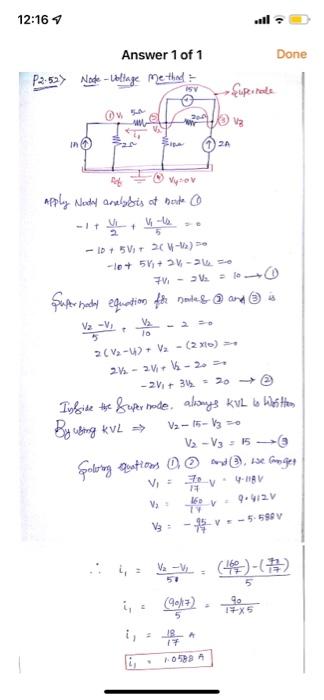 12:16
Answer 1 of 1
Done
P2.52> Node-Voltage Method :-
15V
Supernode
① V1
5Ω
②
V2
20Ω
③ V3
i1
1A
2Ω
10Ω
2A
Ref
④ V4=0V
Apply Nodal analysis at node ①
-1 + V1/2 + (V1-V2)/5 = 0
-10 + 5V1 + 2(V1-V2) = 0
-10 + 5V1 + 2V1 - 2V2 = 0
7V1 - 2V2 = 10 → ①
Supernodal equation for nodes ② and ③ is
(V2-V1)/5 + V2/10 - 2 = 0
2(V2-V1) + V2 - (2×10) = 0
2V2 - 2V1 + V2 - 20 = 0
-2V1 + 3V2 = 20 → ②
Inside the Supernode, always KVL is written
By using KVL ⇒ V2-15-V3=0
V2 - V3 = 15 → ③
Solving equations ①, ② and ③, we can get
V1 = 70/17 V = 4.118V
V2 = 160/17 V = 9.412V
V3 = -95/17 V = -5.588V
∴ i1 = (V2-V1)/5 = ((160/17)-(70/17))/5
i1 = (90/17)/5 = 90/(17×5)
i1 = 18/17 A
i1 = 1.0588 A